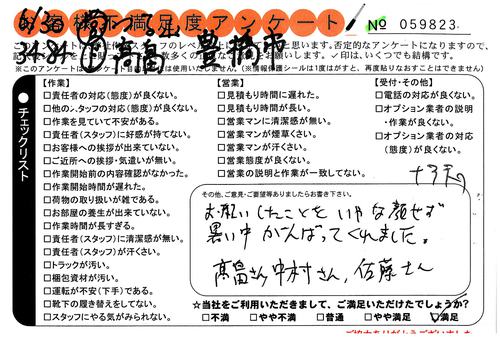 満足度アンケート № 059823
豊橋市
のスタッフのレベル
と思います。否定的なアンケートになりますので、
数多くの
お願いします。✓印は、いくつでも結構です。
※このアンケートは
使用いたしません。(※情報保護シールは1度がすと、再度貼りなおすことはできません)
●チェックリスト
【作業】
□責任者の対応(態度)が良くない。
□他のスタッフの対応(態度)が良くない。
□作業を見ていて不安がある。
□責任者(スタッフ)に好感が持てない。
□お客様への挨拶が出来ていない。
□ご近所への挨拶・気遣いが無い。
□作業開始前の内容確認がなかった。
□作業開始時間が遅れた。
□荷物の取り扱いが雑である。
□お部屋の養生が出来ていない。
□作業時間が長すぎる。
□責任者(スタッフ)に清潔感が無い。
□責任者(スタッフ)が汗くさい。
□トラックが汚い。
□梱包資材が汚い。
□運転が不安(下手)である。
□靴下の履き替えをしてない。
□スタッフにやる気がみられない。
【営業】
□見積もり時間に遅れた。
□見積もり時間が長い。
□営業マンに清潔感が無い。
□営業マンが煙草くさい。
□営業マンが汗くさい。
□営業態度が良くない。
□営業の説明と作業が一致してない。
【受付・その他】
□電話の対応が良くない。
□オプション業者の説明
・作業が良くない。
□オプション業者の対応
(態度)が良くない。
その他、ご意見・ご要望等ありましたらお書き下さい。
お願いしたことを いやな顔せず
暑い中 がんばってくれました。
高畠さん 中村さん、佐藤さん
☆当社をご利用いただきまして、ご満足いただけたでしょうか?
□不満 □やや不満 □普通 □やや満足 ☑満足
ご協力ありがとうございました